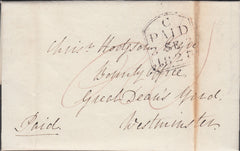 C
PAID
SE
1825
Christ Hodgson Esqre
Bounty Office
Great Dean's Yard
Westminster
Paid